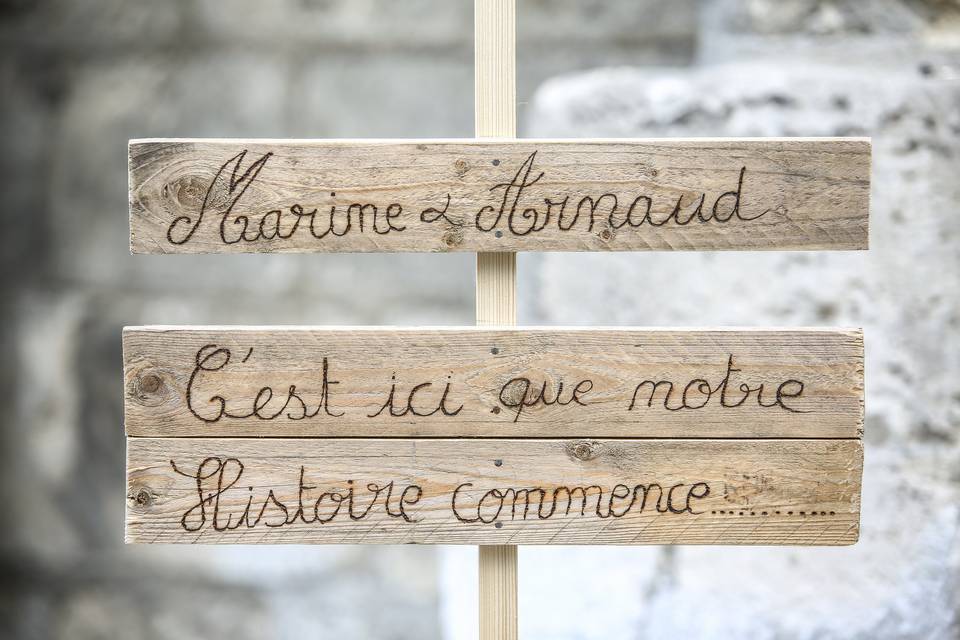 Marine & Arnaud
C'est ici que notre
Histoire commence............